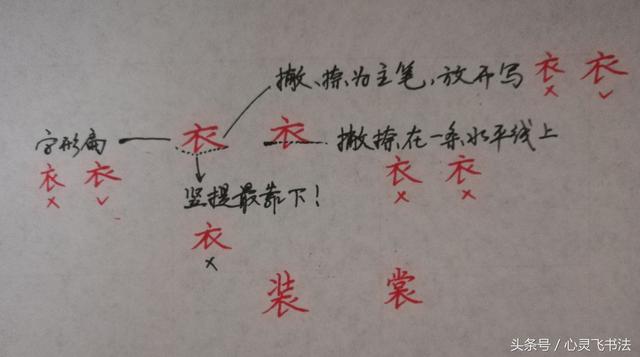 撇、捺为主笔，放开写 衣 衣
× ✓
字形扁 衣 衣 撇捺在一条水平线上
衣 衣 衣 衣
× ✓ × ×
竖提最靠下！
衣
×
装 裳
头条号 / 心灵飞书法